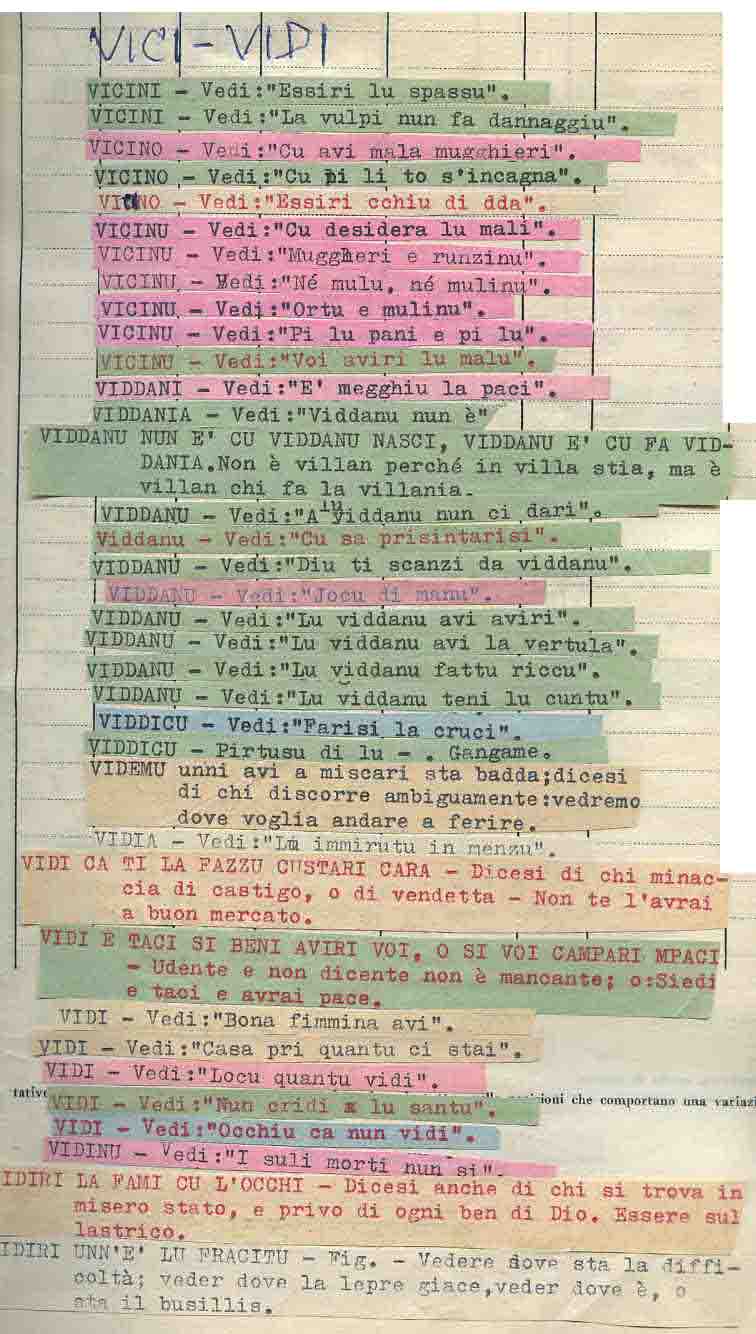 VICI-VIDI
VICINI - Vedi:"Essiri lu spassu".
VICINI - Vedi:"La vulpi nun fa dannaggiu".
VICINO - Vedi:"Cu avi mala mugghieri".
VICINO - Vedi:"Cu pi li to s'incagna".
VICINO - Vedi:"Essiri cchiu di dda".
VICINU - Vedi:"Cu desidera lu mali".
VICINU - Vedi:"Muggheri e runzinu".
VICINU - Vedi:"Né mulu, né mulinu".
VICINU - Vedi:"Ortu e mulinu".
VICINU - Vedi:"Pi lu pani e pi lu".
VICINU - Vedi:"Voi aviri lu malu".
VIDDANI - Vedi:"E' megghiu la paci".
VIDDANIA - Vedi:"Viddanu nun è"
VIDDANU NUN E' CU VIDDANU NASCI, VIDDANU E' CU FA VID-
DANIA.Non è villan perché in villa stia, ma è
villan chi fa la villania.
VIDDANU - Vedi:"A lu viddanu nun ci dari".
Viddanu - Vedi:"Cu sa prisintarisi".
VIDDANU - Vedi:"Diu ti scanzi da viddanu".
VIDDANU - Vedi:"Jocu di manu".
VIDDANU - Vedi:"Lu viddanu avi aviri".
VIDDANU - Vedi:"Lu viddanu avi la vertula".
VIDDANU - Vedi:"Lu viddanu fattu riccu".
VIDDANU - Vedi:"Lu viddanu teni lu cuntu".
VIDDICU - Vedi:"Farisi la cruci".
VIDDICU - Pirtusu di lu - . Gangame.
VIDEMU unni avi a miscari sta badda;dicesi
di chi discorre ambiguamente:vedremo
dove voglia andare a ferire.
VIDIA - Vedi:"Lu immirutu in menzu".
VIDI CA TI LA FAZZU CUSTARI CARA - Dicesi di chi minac-
cia di castigo, o di vendetta - Non te l'avrai
a buon mercato.
VIDI E TACI SI BENI AVIRI VOI, O SI VOI CAMPARI MPACI
- Udente e non dicente non è mancante; o:Siedi
e taci e avrai pace.
VIDI - Vedi:"Bona fimmina avi".
VIDI - Vedi:"Casa pri quantu ci stai".
VIDI - Vedi:"Locu quantu vidi".
VIDI - Vedi:"Nun cridi a lu santu".
ioni che comportano una variazi
VIDI - Vedi:"Occhiu ca nun vidi".
VIDINU - Vedi:"I suli morti nun si".
IDIRI LA FAMI CU L'OCCHI - Dicesi anche di chi si trova in
misero stato, e privo di ogni ben di Dio. Essere sul
lastrico.
IDIRI UNN'E' LU FRACITU - Fig. - Vedere dove sta la diffi-
coltà; veder dove la lepre giace,veder dove è, o
sta il busillis.